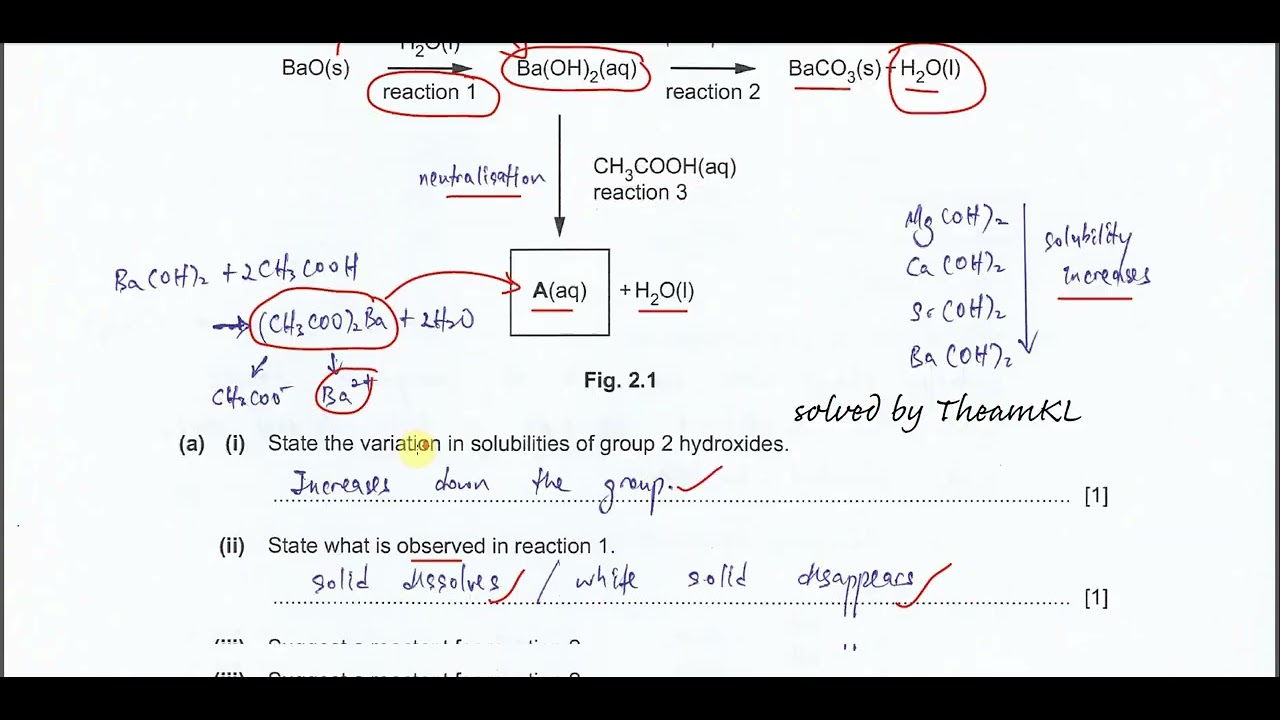 H₂O(l)
BaO(s) Ba(OH)₂(aq) BaCO₃(s) + H₂O(l)
reaction 1 reaction 2
neutralisation
CH₃COOH(aq)
reaction 3
Mg(OH)₂
Ca(OH)₂
Sr(OH)₂
Ba(OH)₂
solubility
increases
Ba(OH)₂ + 2CH₃COOH
→ (CH₃COO)₂Ba + 2H₂O
CH₃COO⁻ Ba²⁺
A(aq) + H₂O(l)
Fig. 2.1
solved by TheamKL
(a) (i) State the variation in solubilities of group 2 hydroxides.
Increases down the group. [1]
(ii) State what is observed in reaction 1.
solid dissolves / white solid disappears [1]